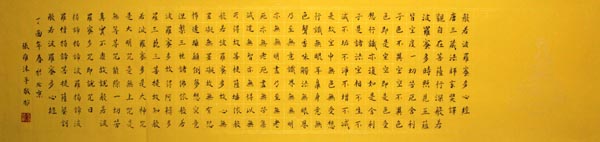 般若波羅蜜多心經
唐三藏法師玄奘譯
觀自在菩薩行深般若
波羅蜜多時照見五蘊
皆空度一切苦厄舍利
子色不異空空不異色
色即是空空即是色受
想行識亦復如是舍利
子是諸法空相不生不
滅不垢不淨不增不減
是故空中無色無受想
行識無眼耳鼻舌身意無
色聲香味觸法無眼界
乃至無意識界無無明
亦無無明盡乃至無老
死亦無老死盡無苦集
滅道無智亦無得以無所
得故菩提薩埵依般
若波羅蜜多故心無罣
礙無罣礙故無有恐怖
遠離顛倒夢想究竟
涅槃三世諸佛依般若
波羅蜜多故得阿耨多
羅三藐三菩提故知般
若波羅蜜多是大神咒
是大明咒是無上咒是
無等等咒能除一切苦
真實不虛故說般若波
羅蜜多咒即說咒曰
揭諦揭諦波羅揭諦波
羅僧揭諦菩提薩婆訶
般若波羅蜜多心經
丁酉年春於北京